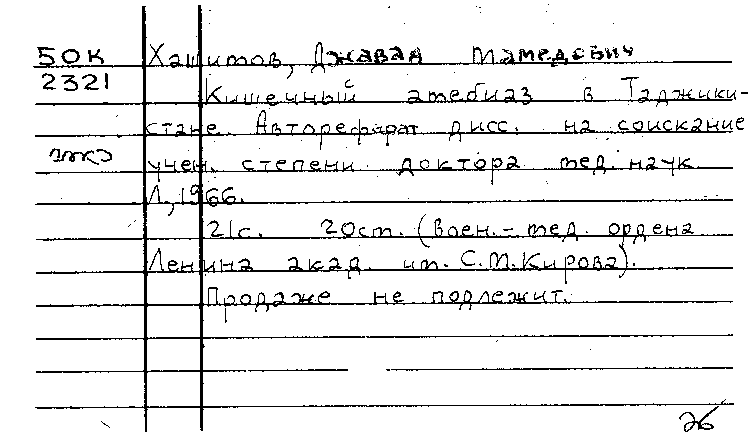 БОК Хашимов, Джавад Мамедович
2321 Кишечный амебиаз в Таджики-
стане. Автореферат дисс. на соискание
учен. степени доктора мед. наук
Л, 1966.
21с. 20см. (Воен.-мед. ордена
Ленина акад. им. С.М.Кирова).
Продаже не подлежит.